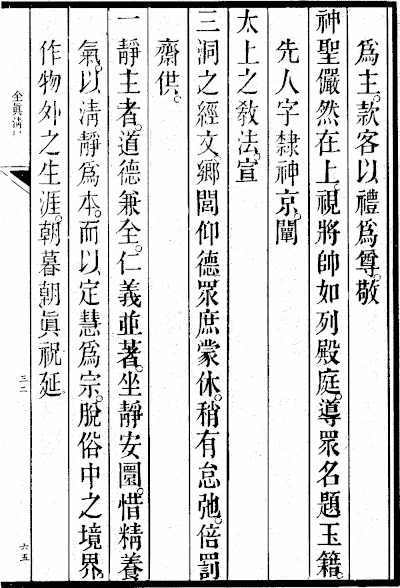 爲主。款客以禮爲尊。敬
神聖儼然在上。視將帥如列殿庭。導眾名題玉籍。
先人字隸神京。闡
太上之敎法。宣
三洞之經文。鄉閭仰德。眾庶蒙休。稍有怠弛。倍罰
齋供。
一靜主者。道德兼全。仁義並著。坐靜安圜。惜精養
氣。以淸靜爲本。而以定慧爲宗。脫俗中之境界。
作物外之生涯。朝暮朝眞祝延
全眞淸
三二
六五